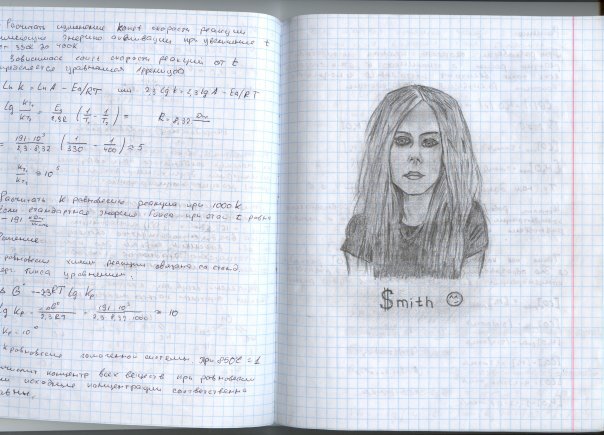 Расчитать изменение конст скорости реакции
имеющую энергию активации при увеличение t
от 330К до 400К
Зависимость конст скорости реакции от t
определяется уравнением Аррениуса
Ln K = Ln A – Ea/RT или 2,3 lg k = 2,3 lg A – Ea/RT
lg = ( 1/T₁ – 1/T₂ ) = R = 8,32
= 191·10³ / 2,3·8,32 ( 1/330 – 1/400 ) ≈ 5
≈ 10⁵
Расчитать К равновесия реакции при 1000 К
если стандартная энергия Гиббса при этой t равна
–191
Решение
равновесия химич реакции связана со станд.
Гиббса уравнением:
G° –2,3RT lg Kp
lg Kp = = 191·10³ / 2,3·8,32·1000 = 10
Kp = 10
К равновесия системы при 850°C = 1
концентр всех веществ при равновесии
исходные концентрации соответственно
равны.
$mith